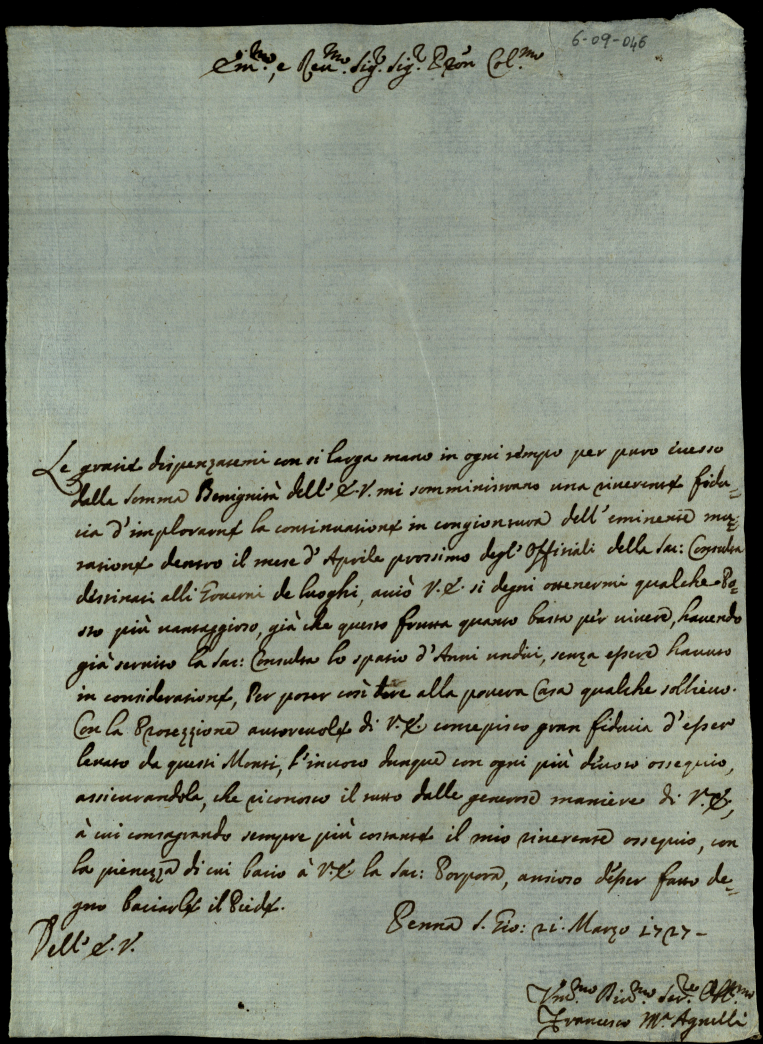 6-09-046
Em.mo, e Reu.mo Sig.r Sig.r Pron Col.mo
Le gratie dispenzatemi con si larga mano in ogni tempo per puro
della somma Benignità dell'E.V. mi somministrano una riuerente fidu=
cia d'implorarne la continuatione in congiontura dell'eminente mu=
tatione dentro il mese d'Aprile prossimo degl'Offitiali della Sac: Consulta
destinati alli Gouerni de luoghi, acciò V.E. si degni ottenermi qualche Po=
sto più uantaggioso, già che questo frutta quanto basta per uiuere, hauendo
già seruito la Sac: Consulta lo spatio d'Anni undici, senza essere hauuto
in consideratione, Per poter così alla pouera Casa qualche sollieuo.
Con la Protezzione autoreuole di V.E. concepisco gran fiducia d'esser
leuato da questi Monti, l'inuoco dunque con ogni più diuoto ossequio,
assicurandola, che riconosco il tutto dalle generose maniere di V.E,
à cui consagrando sempre più costante il mio riuerente ossequio, con
la pienezza di cui bacio à V.E la Sac: Porpora, ansioso d'esser fatto de=
gno baciarle il Piede.
Dell'E.V.
Penna S. Gio: 21. Marzo 1727-
Deu.mo Ser.re
Francesco M.a Agnelli